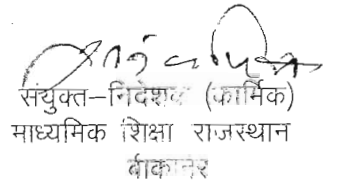 संयुक्त-निदेशक (कार्मिक)
माध्यमिक शिक्षा राजस्थान
बीकानेर